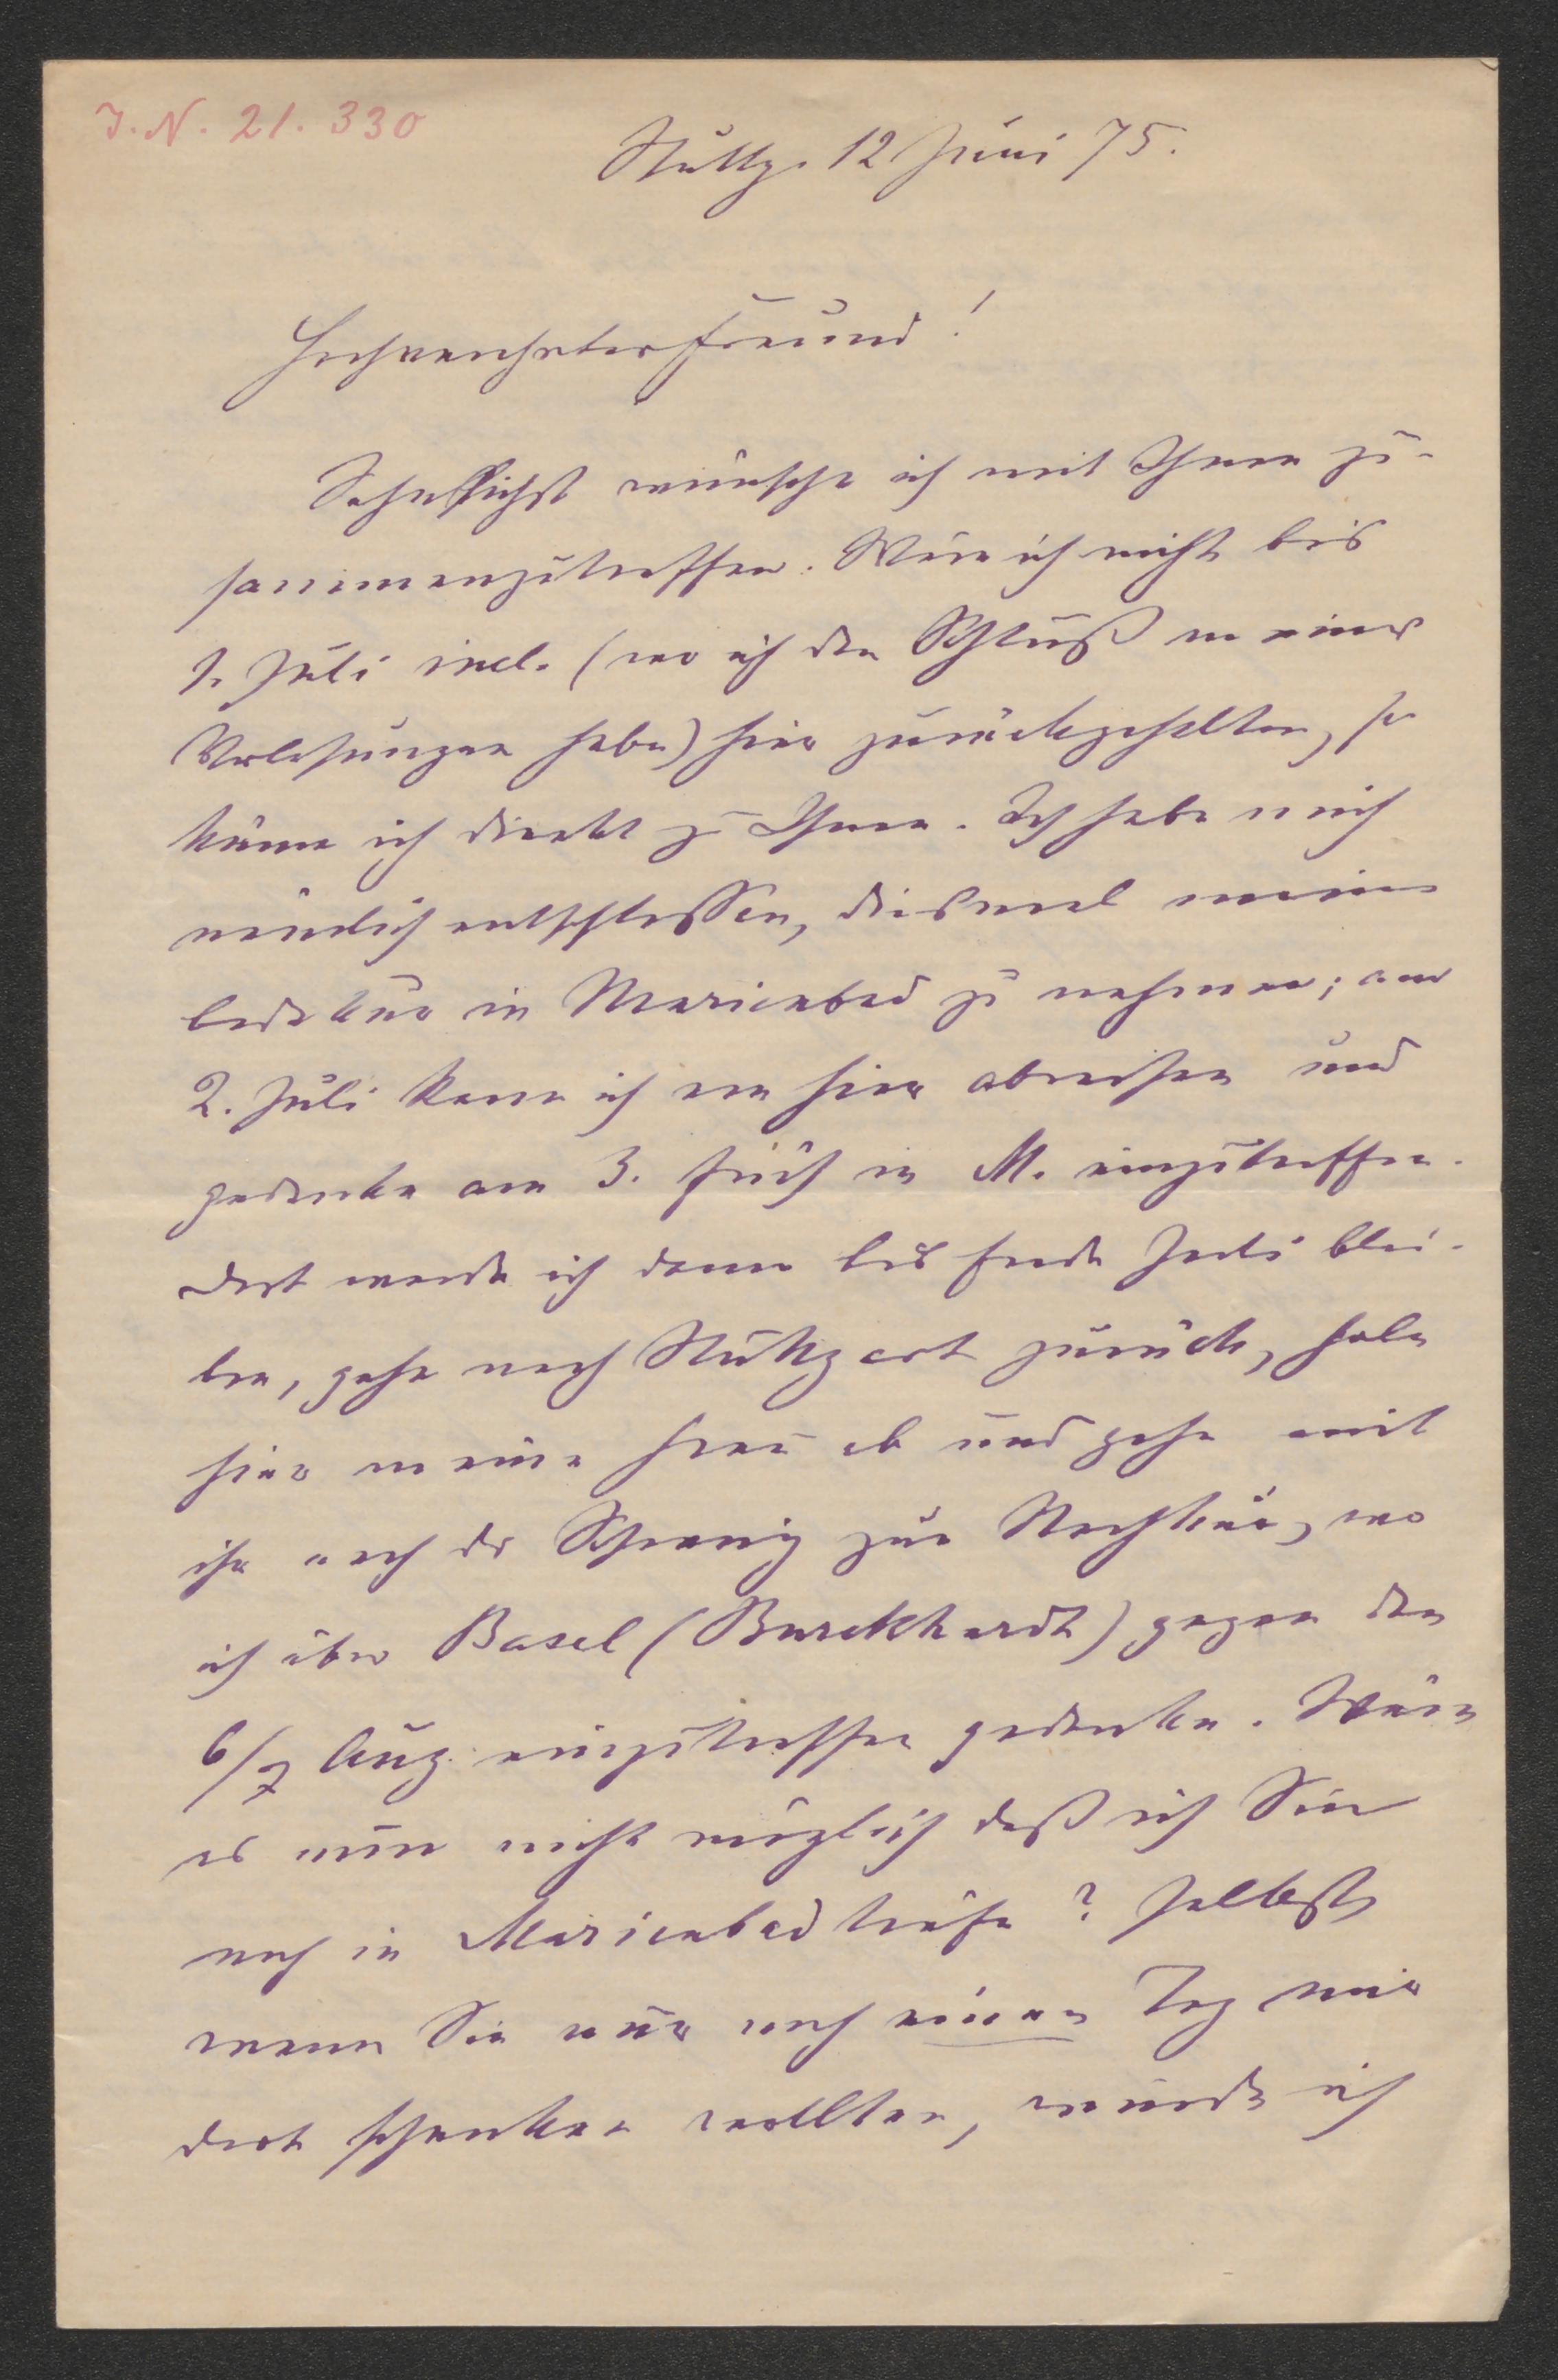 J. N. 21. 330
Stuttg. 12 Juni 75.
Hochverehrter Freund!
Sehnlichst wünsche ich mit Ihnen zu-
sammenzutreffen. Wäre ich nicht bis
1. Juli incl. (wo ich den Schluß meiner
Vorlesungen habe) hier zurückgehalten, so
käme ich direkt zu Ihnen. Ich habe mich
nämlich entschlossen, diesmal meine
Badekur in Marienbad zu nehmen; am
2. Juli kann ich von hier abreisen und
gedenke am 3. früh in M. einzutreffen.
Dort werde ich dann bis Ende Juli blei-
ben, gehe nach Stuttgart zurück, hole
hier meine Frau ab und gehe mit
ihr nach der Schweiz zur Nachkur, wo
ich über Basel (Burckhardt) gegen den
6/7 Aug. einzutreffen gedenke. Wäre
es nun nicht möglich daß ich Sie
noch in Marienbad träfe? Selbst
wenn Sie nur noch einen Tag mir
dort schenken wollten, würde ich